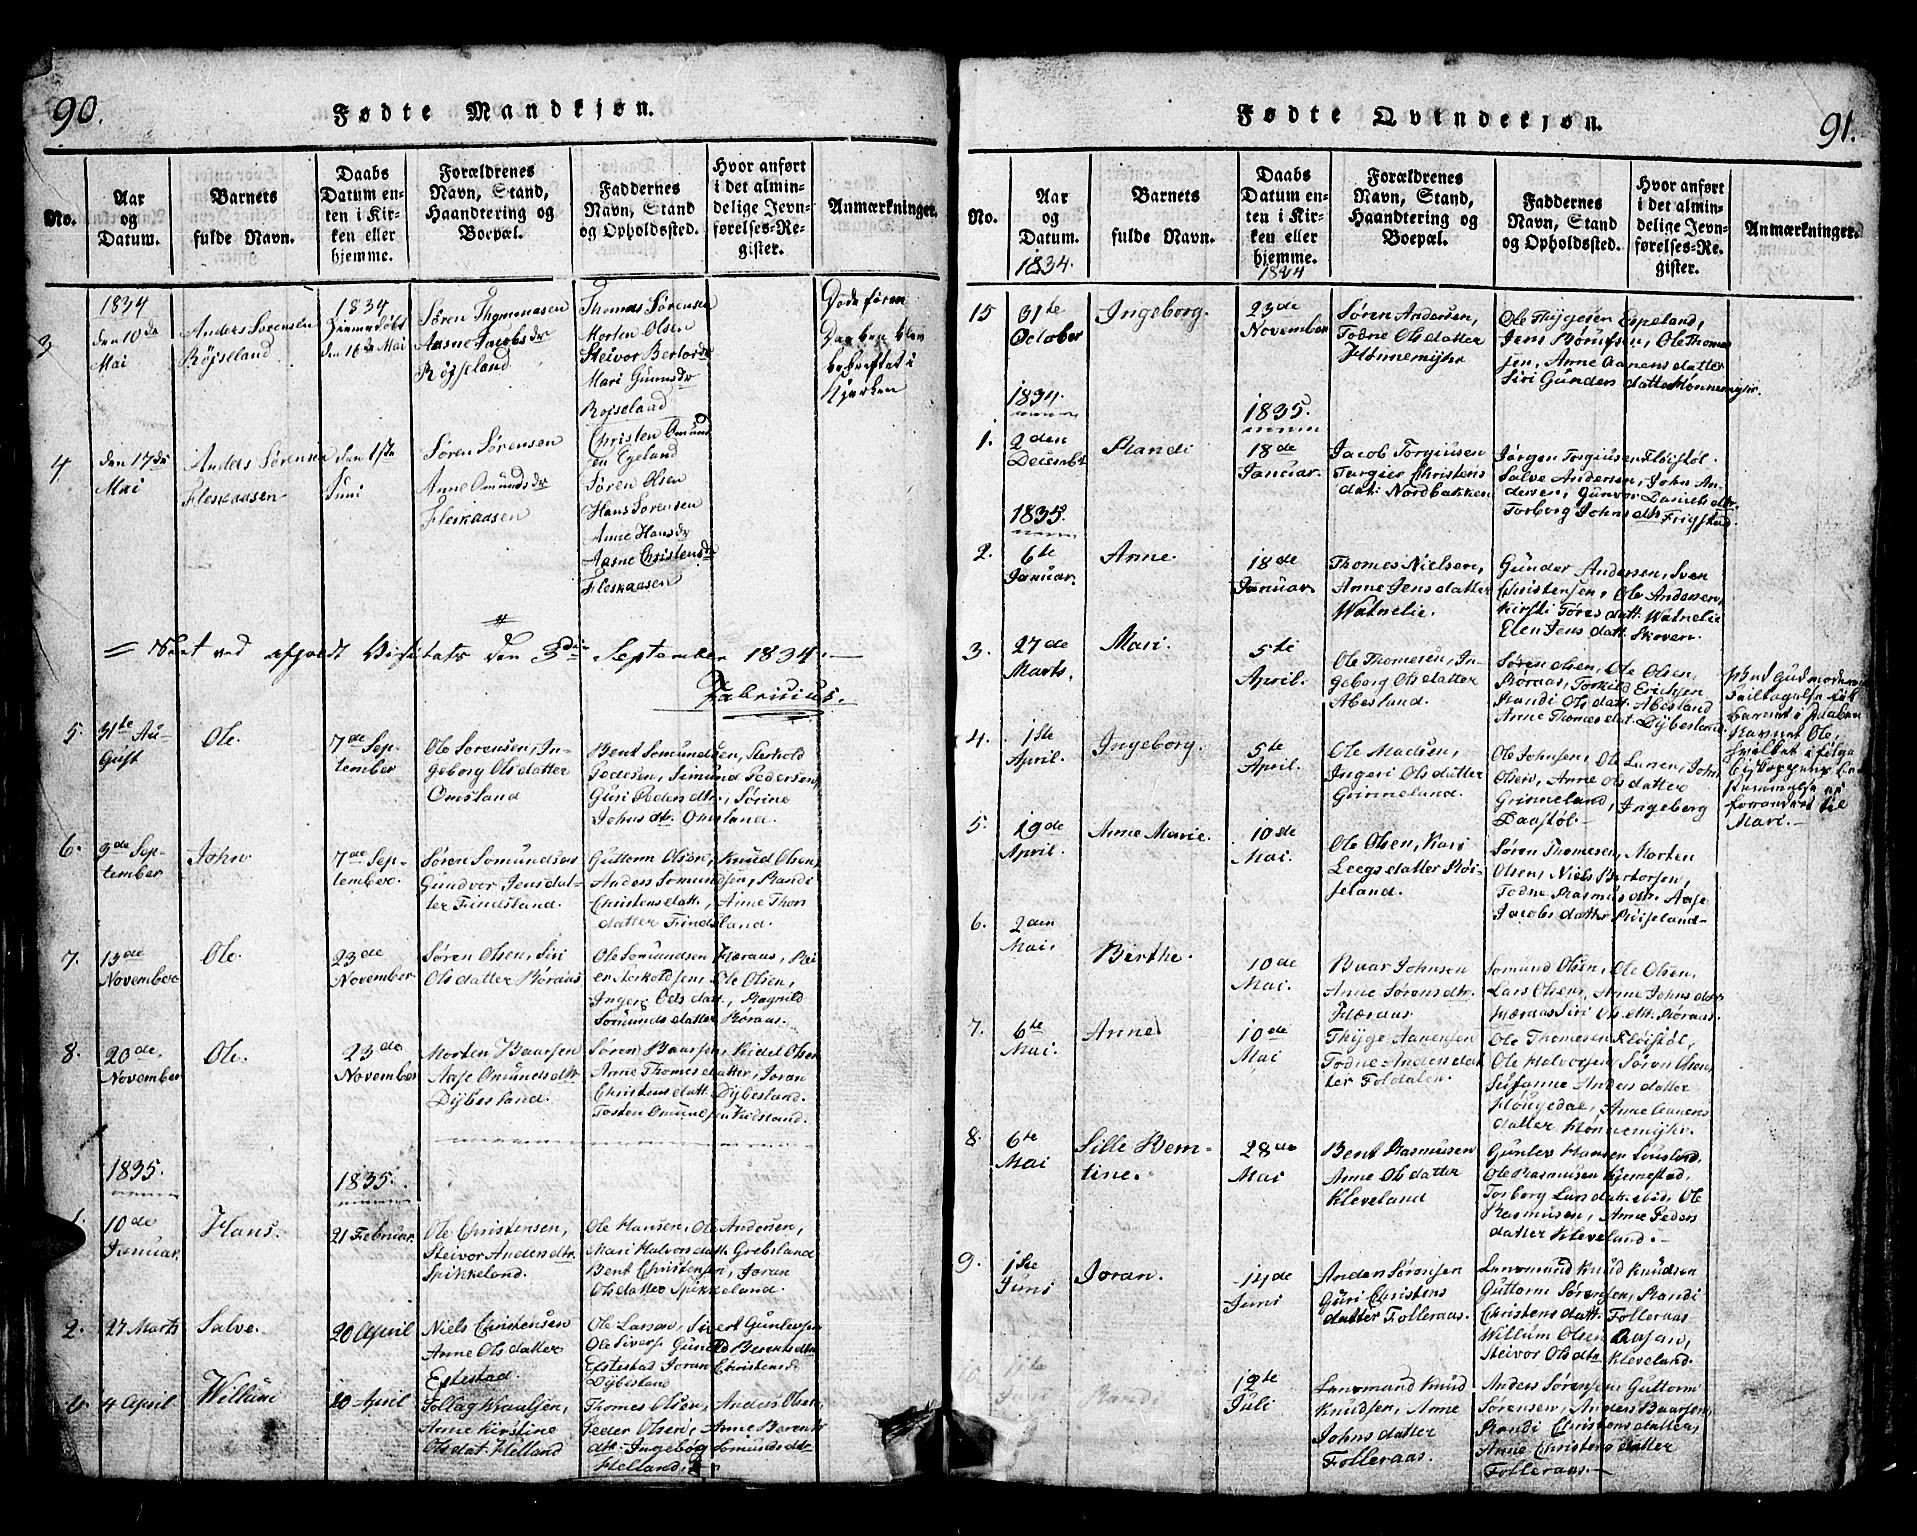 90.
Fødte Mandkjøn.
No.
Aar
og
Datum.
Barnets
fulde Navn.
Daabs
Datum en-
ten i Kir-
ken eller
hjemme.
Forældrenes
Navn, Stand,
Haandtering og
Boepæl.
Faddernes
Navn, Stand
og Opholdssted.
Hvor anført
i det almin-
delige Jevn-
førelses-Re-
gister.
Anmærkninger.
3
1834
den 10de
Mai
Anders Sørensen
Röjseland
1834
Hjemmedøbt
den 16de Mai
Søren Thommesen
Aasne Jacobsdr
Röjseland
Thomas Sørensen
Morten Olsen
Steivor Bertorsdr
Mari Gunnsdr
Rojseland
Døde føren
Daaben blev
bekreftet i
Kjerken
4
den 17de
Mai
Anders Sørensen
Fleskaasen
den 1ste
Juni
Søren Sørensen
Anne Omundsdr
Fleskaasen
Christen Omund
sen Egeland
Søren Olsen
Hans Sørensen
Anne Hansdr
Aasne Christensdr
Fleskaasen
= Seet ved afholdt Visitats den 3die September 1834.
Fabricius.
5.
31te Au-
gust
Ole.
7de Sep-
tember
Ole Sørensen, In-
geborg Olsdatter
Omsland
Bent Somundsen, Terkold
Pedersen, Simund Pedersen,
Guri Pedersdtr, Sørine
Johnsdtr. Omsland.
6.
3de Sep-
tember
John
7de Sep-
tember.
Søren Somundsen
Gundvor Jensdat-
ter Findsland.
Guttorm Olsen, Knud Olsen,
Anders Somundsen, Randi
Christensdatt., Anne Thors
datter Findsland.
7.
13de
November
Ole.
23de
November
Søren Olsen, Siri
Olsdatter Røraas
Ole Somundsen Hæraas, Rei
er Terkoldsen, Ole Olsen,
Inger Olsdatt., Ragnild
Somundsdatter Røraas.
8.
20de
November
Ole.
23de
November
Morten Baarsen
Aase Omundsdtr
Dÿbesland.
Søren Baarsen, Kidel Olsen
Anne Thomesdatter, Joran
Christensdatt. Dÿbesland.
Tosten Omundsen Kidsland.
1835.
1835.
1.
10de
Januar.
Hans.
21 Februar.
Ole Christensen,
Steivor Andersdtr.
Spikkeland.
Ole Hansen, Ole Andersen,
Mari Halvorsdatt. Grebsland
Bent Christensen, Joran
Olsdatter Spikkeland.
2.
27 Marts
Salve.
20 April
Niels Christensen
Anne Olsdatter
Estestad.
Ole Larsen, Sivert Gunlevsen
Ole Sivers. Guneld Berntsdtr
Estestad Joran Christensd
Dÿbesland
3
4 April
Willum
20 April
Tollag Knudsen,
Anne Kirstine
Olsdat. Helland
Thomes Olsen, Anders Olsen
Peder Olsen, Anne Barents
dtr. Ingebøg Somundsdtr
Helland.
91.
Fødte Qvindekjøn.
No.
Aar
og
Datum.
1834.
Barnets
fulde Navn.
Daabs
Datum en-
ten i Kir-
ken eller
hjemme.
1834
Forældrenes
Navn, Stand,
Haandtering og
Boepæl.
Faddernes
Navn, Stand
og Opholdssted.
Hvor anført
i det almin-
delige Jevn-
førelses-Re-
gister.
Anmærkninger.
15
31te
October
Ingeborg.
23de
November
Søren Andersen,
Todne Olsdatter
Hønnemÿhr
Ole Thÿgesen Espeland,
Jens Børufsen, Ole Thomes
sen, Anne Aanensdatter
Siri Gundersdatter Hønnemÿhr.
1834.
1835.
1.
2den
Decembr
Randi
18de
Januar.
Jacob Torgiusen
Turgier Christens
datt. Nordbakken
Jørgen Torgiusen Fløistøl.
Salve Andersen, John An-
dersen, Gunvor Danielsdtr.
Torborg Johnsdtr Frigstad.
1835.
2.
6te
Januar.
Anne.
18de
Januar.
Thomes Nielsen,
Anne Jensdatter
Watnelie.
Gunder Andersen, Sven
Christensen, Ole Andersen,
Kirsti Toresdatt. Watnelie
Elen Jensdatt. Skoven.
3.
27de
Marts.
Mari.
5te
April.
Ole Thomesen, In-
geborg Olsdatter
Abesland.
Søren Olsen, Ole Olsen
Røraas, Torkild Erichsen
Randi Olsdatt. Abesland
Anne Thomesdat. Dÿbesland
Ved Gudmoderens
Feiltagelse fik
Barnet i Daaben
Navnet Ole,
hvilket i følge
Biskoppens be
stemmelse er
forandret til
Mari.
4.
1ste
April.
Ingeborg.
5te
April.
Ole Madsen,
Ingeri Olsdatter
Grinneland.
Ole Johnsen, Ole Larsen, John
Olsen, Anne Olsdatter
Grinneland, Ingeberg
Daastøl.
5.
19de
April.
Anne Marie.
10de
Mai.
Ole Olsen, Kari
Leegsdatter Røi-
seland.
Søren Thomesen, Morten
Olsen, Niels Bertorsen,
Todne Rasmusdtr. Aase
Jacobsdatter Røiseland.
6.
2den
Mai.
Birthe.
10de
Mai.
Baar Johnsen
Anne Sørensdtr.
Hæraas
Somund Olsen, Ole Olsen,
Lars Olsen, Anne Johnsdatr
Hæraas Siri Olsdtr. Røraas.
7.
6te
Mai.
Anne
10de
Mai
Thÿge Aanensen
Todne Andersdat
ter Foldalen.
Ole Thomesen Fløistøl,
Ole Halvorsen Søren Olsen,
Susanne Andersdatter
Høugedal, Anne Aanens
datter Hønnemÿhr.
8.
6te
Mai
Sille Bem-
tine.
28de
Mai
Bent Rasmusen
Anne Olsdatter
Kleveland
Gunlev Hansen Lusland,
Ole Rasmusen Hjemestad,
Torborg Larsdatr. ibid, Ole
Rasmusen, Anne Peders
datter Kleveland.
9.
1ste
Juni
Joran.
14de
Juni
Anders Sørensen
Guri Christens
datter Folleraas.
Lansmand Knud Knudsen
Guttorm Sørensen, Randi
Christensdatt. Folleraas
Willum Olsen Aasan,
Steivor Olsdtr. Kleveland.
10.
11te
Randi
12te
Juli
Lansmand Knud
Knudsen, Anne
Johnsdatter
Folleraas.
Anders Sørensen, Guttorm
Sørensen, Anders Baarsen,
Randi Christensdatter,
Anne Christensdatter
Folleraas.